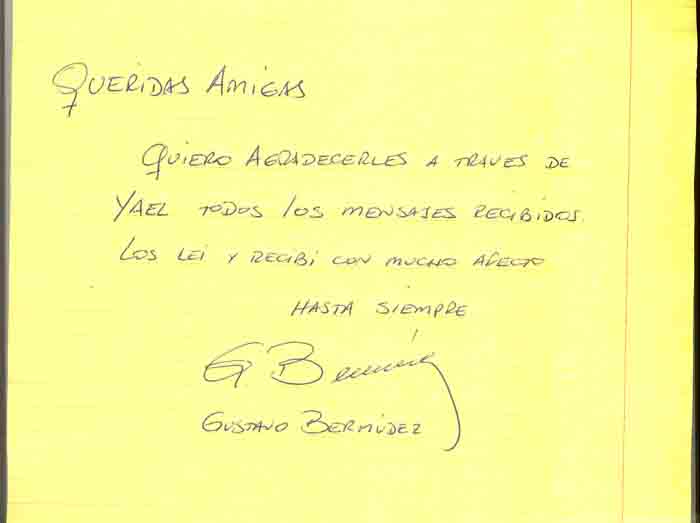 QUERIDAS AMIGAS
QUIERO AGRADECERLES A TRAVES DE
YAEL TODOS LOS MENSAJES RECIBIDOS.
LOS LEI Y RECIBI CON MUCHO AFECTO
HASTA SIEMPRE
G. Bermúdez
GUSTAVO BERMÚDEZ